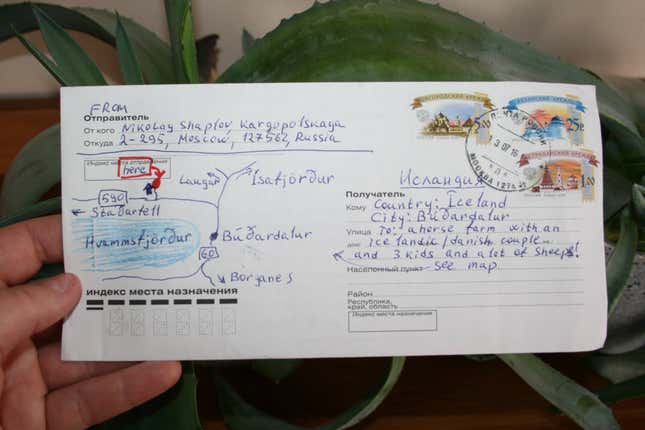 FROM
Отправитель
От кого Nikolay Shaplov, Kargopolskaga
Откуда 2-295, Moscow, 127562, Russia
Индекс места отправления
here
590
Staðarfell
Laugar
Ísafjörður
Hvammsfjörður
Búðardalur
60
Borganes
индекс места назначения
НОВГОРОДСКИЙ КРЕМЛЬ
КАЗАНСКИЙ КРЕМЛЬ
ПОЧТА
МОСКВА
Исландия
Получатель
Кому Country: Iceland
City: Búðardalur
Улица To: a horse farm with an
дом icelandic/danish couple
and 3 kids and a lot of sheeps!
Населенный пункт see map
Район
Республика,
край, область
Индекс места назначения